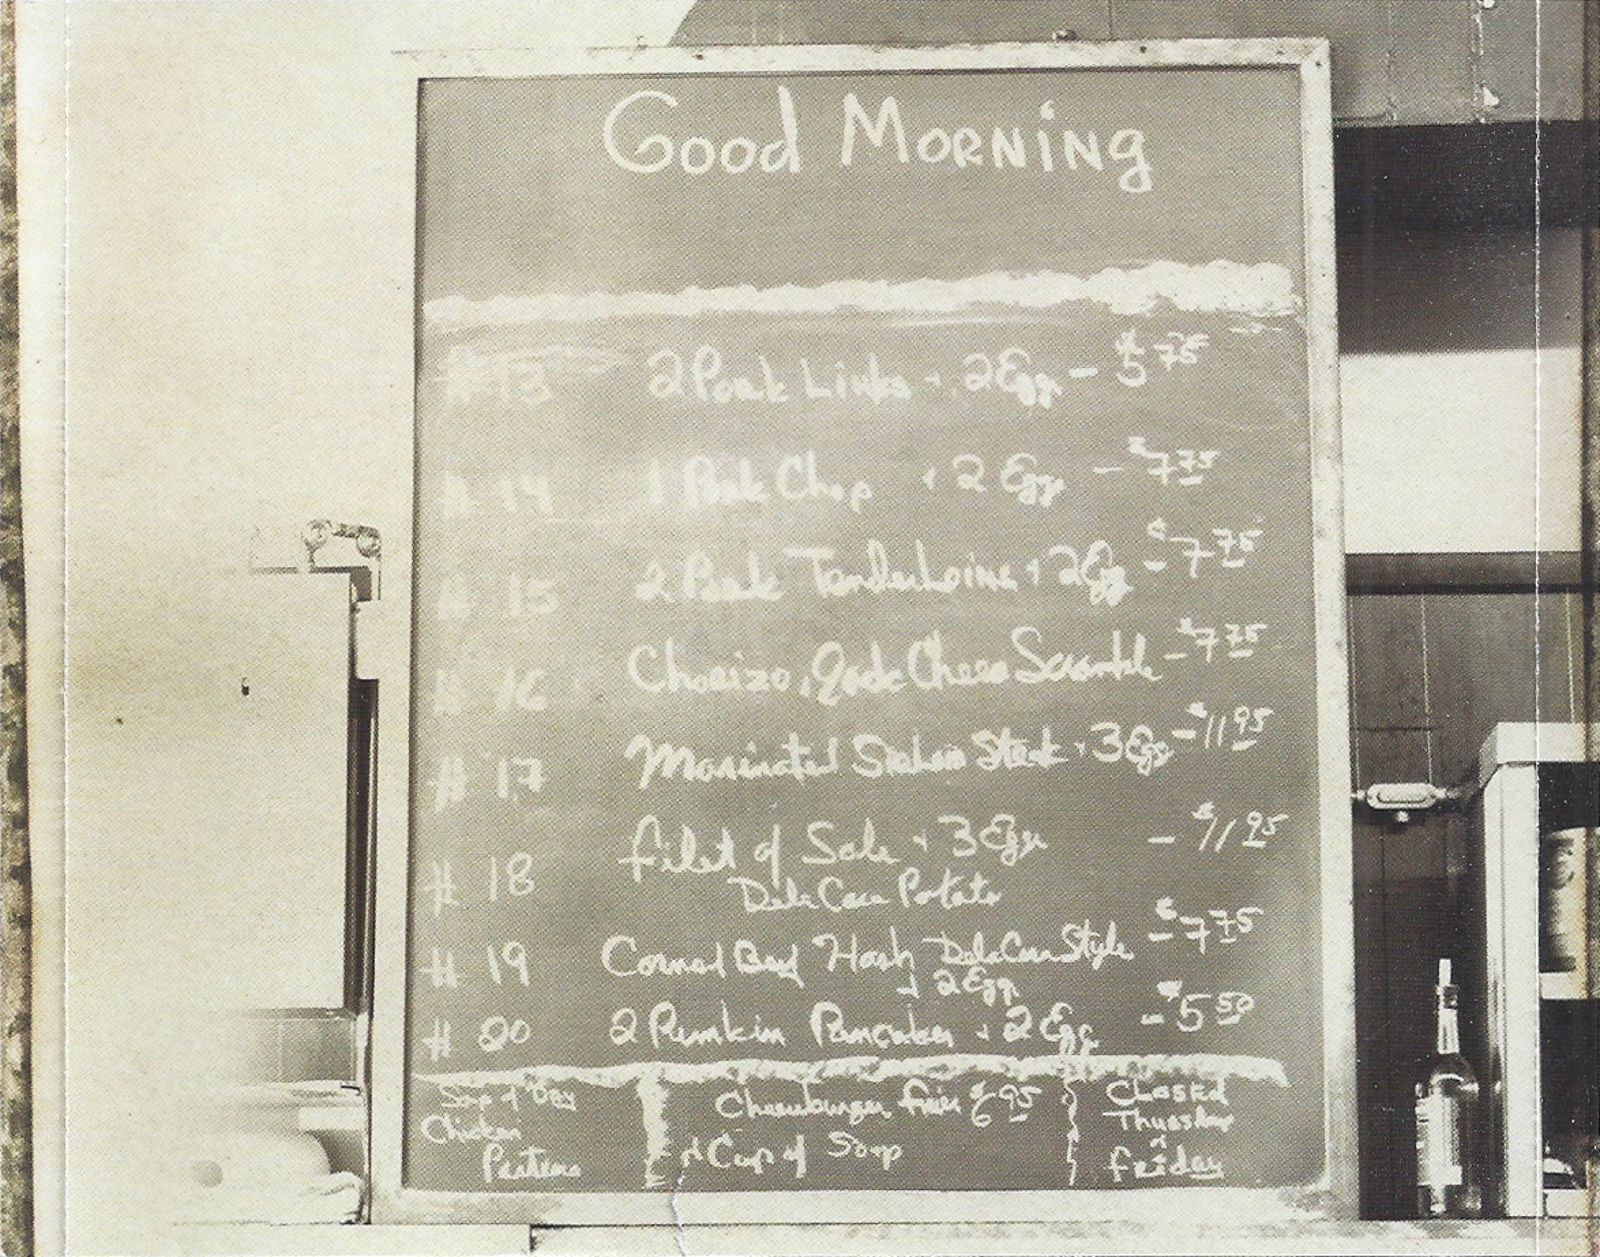 Good Morning
# 13 2 Pork Links + 2 Eggs - $5.75
# 14 1 Pork Chop + 2 Eggs - $7.75
# 15 2 Pork Tenderloins + 2 Egg - $7.75
# 16 Chorizo, Jack Cheese Scramble - $7.75
# 17 Marinated Sirloin Steak + 3 Eggs - $11.95
# 18 Filet of Sole + 3 Eggs - $11.95
Potato
# 19 Corned Beef Hash Style - $7.75
+ 2 Egg
# 20 2 Pumkin Pancakes + 2 Egg - $5.50
Soup of Day
Chicken
Cheeseburger, fries $6.95
+ Cup of Soup
Closed
Thursday
+
Friday